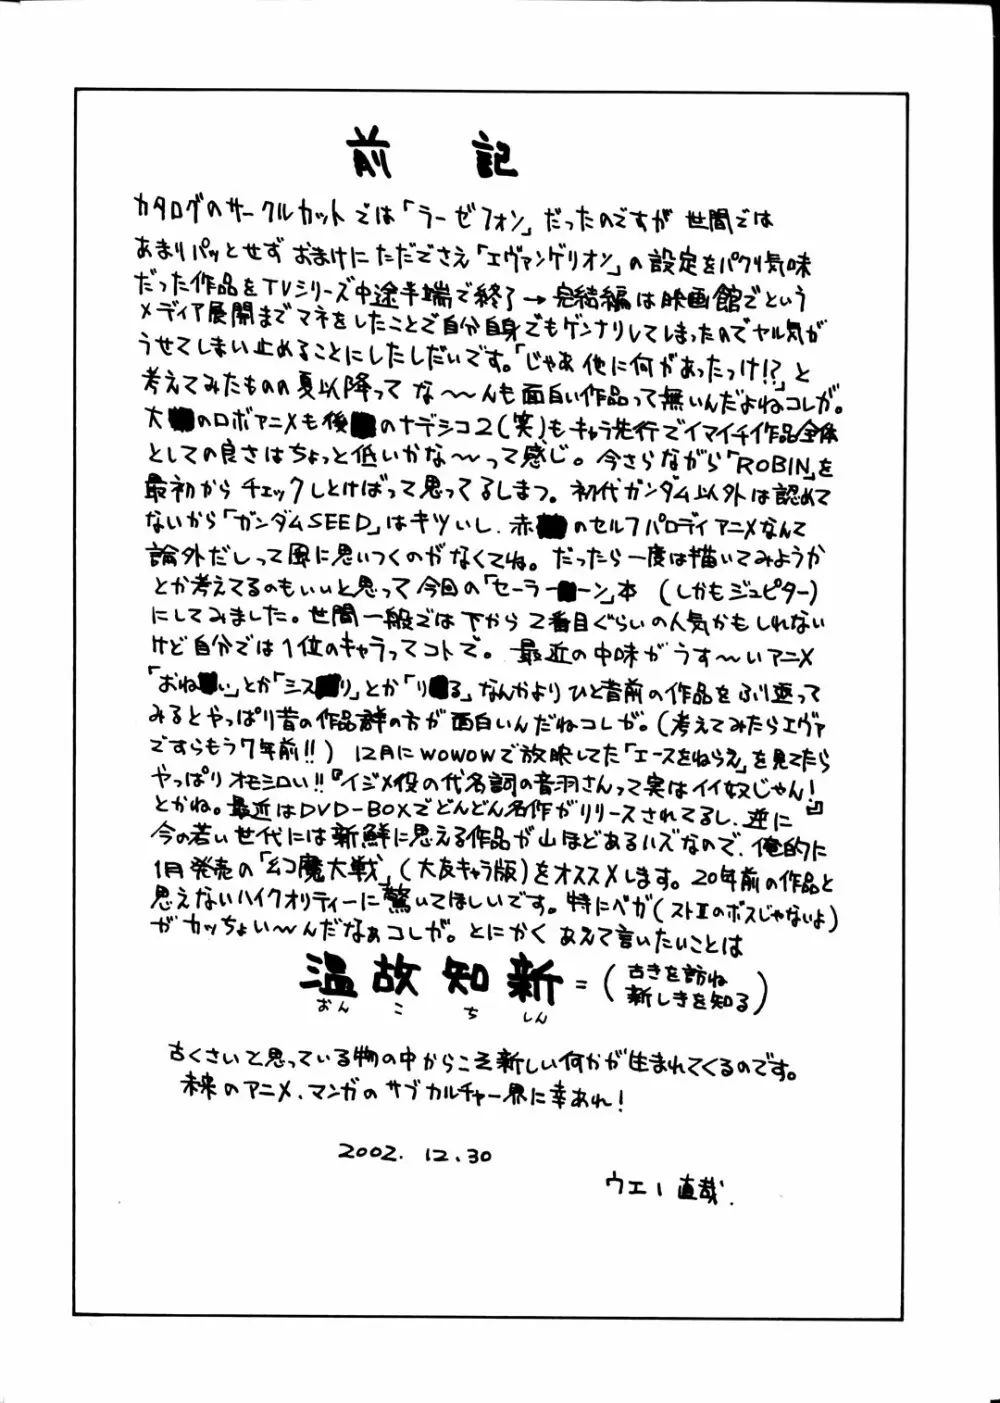 前記
カタログのサークルカットでは「ラーゼフォン」だったのですが 世間では
あまりパッとせず おまけにただでさえ「エヴァンゲリオン」の設定をパクリ気味
だった作品をTVシリーズ中途半端で終了→完結編は映画館でという
メディア展開までマネをしたことで自分自身でもゲンナリしてしまったのでヤル気が
うせてしまい止めることにしたしだいです。「じゃあ他に何があったっけ!?」と
考えてみたものの夏以降って な〜〜んも面白い作品って無いんだよねコレが。
大 のロボアニメも後 のナデシコ2(笑)もキャラ先行でイマイチ作品全体
としての良さはちょっと低いかな〜〜って感じ。今さらながら「ROBIN」を
最初からチェックしとけばって思ってるしまつ。初代ガンダム以外は認めて
ないから「ガンダムSEED」はキツいし、赤 のセルフパロディアニメなんて
論外だしって風に思いつくのがなくてね。だったら一度は描いてみようか
とか考えてるのもいいと思って今回の「セーラー ーン」本 (しかもジュピター)
にしてみました。世間一般では下から2番目ぐらいの人気かもしれない
けど自分では1位のキャラってコトで。最近の中味がうす〜いアニメ
「おね い」とか「シス リ」とか「り る」なんかよりひと昔前の作品をふり返って
みるとやっぱり昔の作品群の方が面白いんだねコレが。(考えてみたらエヴァ
ですらもう7年前!!) 12月にWOWOWで放映してた「エースをねらえ」を見てたら
やっぱりオモシロい!!『イジメ役の代名詞の音羽さんって実はイイ奴じゃん!』
とかね。最近はDVD-BOXでどんどん名作がリリースされてるし、逆に
今の若い世代には新鮮に思える作品が山ほどあるハズなので、俺的に
1月発売の「幻魔大戦」(大友キャラ版)をオススメします。20年前の作品と
思えないハイクオリティーに驚いてほしいです。特にベガ(ストIIのボスじゃないよ)
がカッちょい〜んだなぁコレが。とにかくあえて言いたいことは
温故知新=(古きを訪ね
新しきを知る)
おんこちしん
古くさいと思っている物の中からこそ新しい何かが生まれてくるのです。
未来のアニメ、マンガのサブカルチャー界に幸あれ!
2002.12.30
ウエノ直哉.